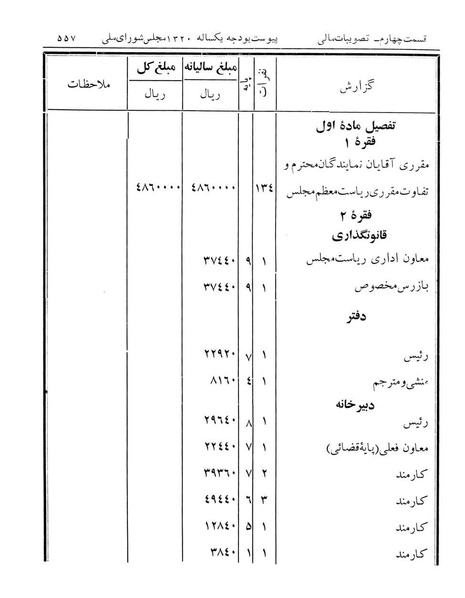 قسمت چهارم ـ تصویبات مالی پیوست بودجه یکساله ۱۳۲۰ مجلس شورای ملی ۵۵۷
گزارش نفرات پایه مبلغ سالیانه ریال مبلغ کل ریال ملاحظات
تفصیل مادهٔ اول
فقرهٔ ۱
مقرری آقایان نمایندگان محترم و
تفاوت مقرری ریاست معظم مجلس ۱۳٤ ٤٨٦٠٠٠٠ ٤٨٦٠٠٠٠
فقرهٔ ۲
قانونگذاری
معاون اداری ریاست مجلس ۱ ۹ ۳۷٤٤۰
بازرس مخصوص ۱ ۹ ۳۷٤٤۰
دفتر
رئیس ۱ ۷ ۲۲۹۲۰
منشی و مترجم ۱ ٤ ۸۱٦۰
دبیرخانه
رئیس ۱ ۸ ۲۹٦٤۰
معاون فعلی (پایهٔ قضائی) ۱ ۷ ۲۲٤٤۰
کارمند ۲ ۷ ۳۹۳٦۰
کارمند ۳ ٦ ٤۹٤٤۰
کارمند ۱ ۵ ۱۲۸٤۰
کارمند ۱ ۱ ۳۸٤۰